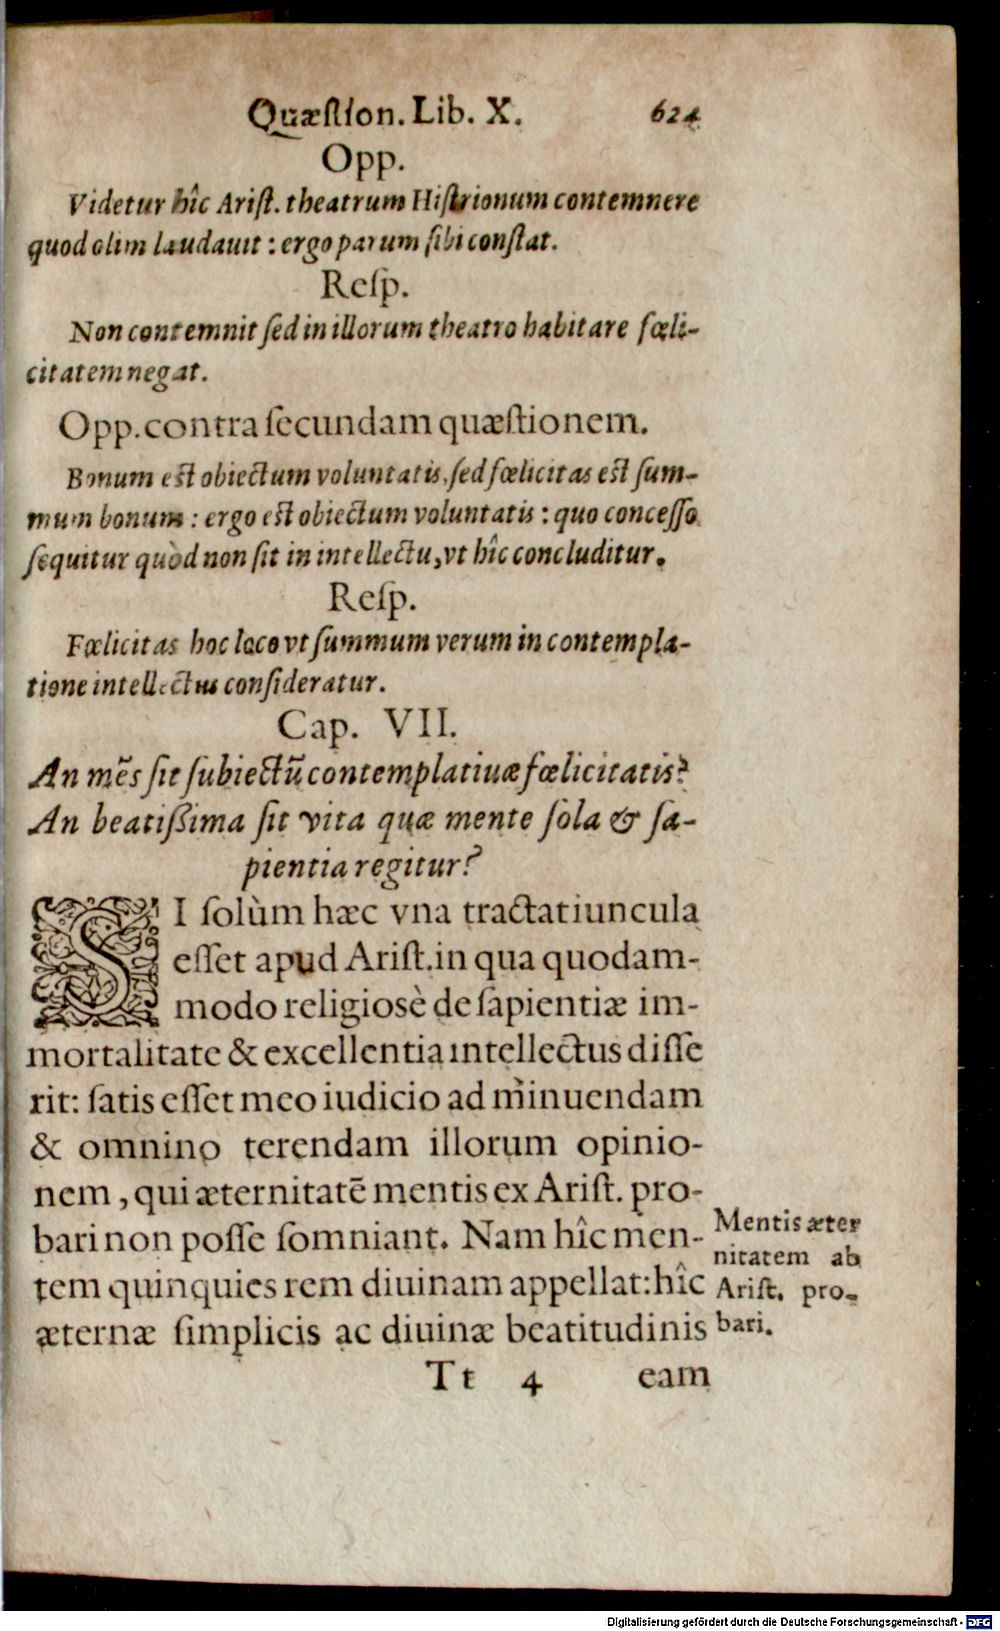 Quæſtion. Lib. X. 624
Opp.
Videtur hîc Ariſt. theatrum Hiſtrionum contemnere
quod olim laudauit : ergo parum ſibi conſtat.
Reſp.
Non contemnit ſed in illorum theatro habitare fœli-
citatem negat.
Opp. contra ſecundam quæſtionem.
Bonum eſt obiectum voluntatis, ſed fœlicitas eſt ſum-
mum bonum : ergo eſt obiectum voluntatis : quo conceſſo
ſequitur quòd non ſit in intellectu, vt hîc concluditur.
Reſp.
Fœlicitas hoc loco vt ſummum verum in contempla-
tione intellectus conſideratur.
Cap. VII.
An mēs ſit ſubiectū contemplatiuæ fœlicitatis?
An beatiſſima ſit vita quæ mente ſola & ſa-
pientia regitur?
SI ſolùm hæc vna tractatiuncula
eſſet apud Ariſt. in qua quodam-
modo religiosè de ſapientiæ im-
mortalitate & excellentia intellectus diſſe
rit: ſatis eſſet meo iudicio ad minuendam
& omnino terendam illorum opinio-
nem, qui æternitatē mentis ex Ariſt. pro-
bari non poſſe ſomniant. Nam hîc men-
tem quinquies rem diuinam appellat: hîc
æternæ ſimplicis ac diuinæ beatitudinis
Mentis æter
nitatem ab
Ariſt. pro-
bari.
Tt 4 eam
Digitalisierung gefördert durch die Deutsche Forschungsgemeinschaft - DFG